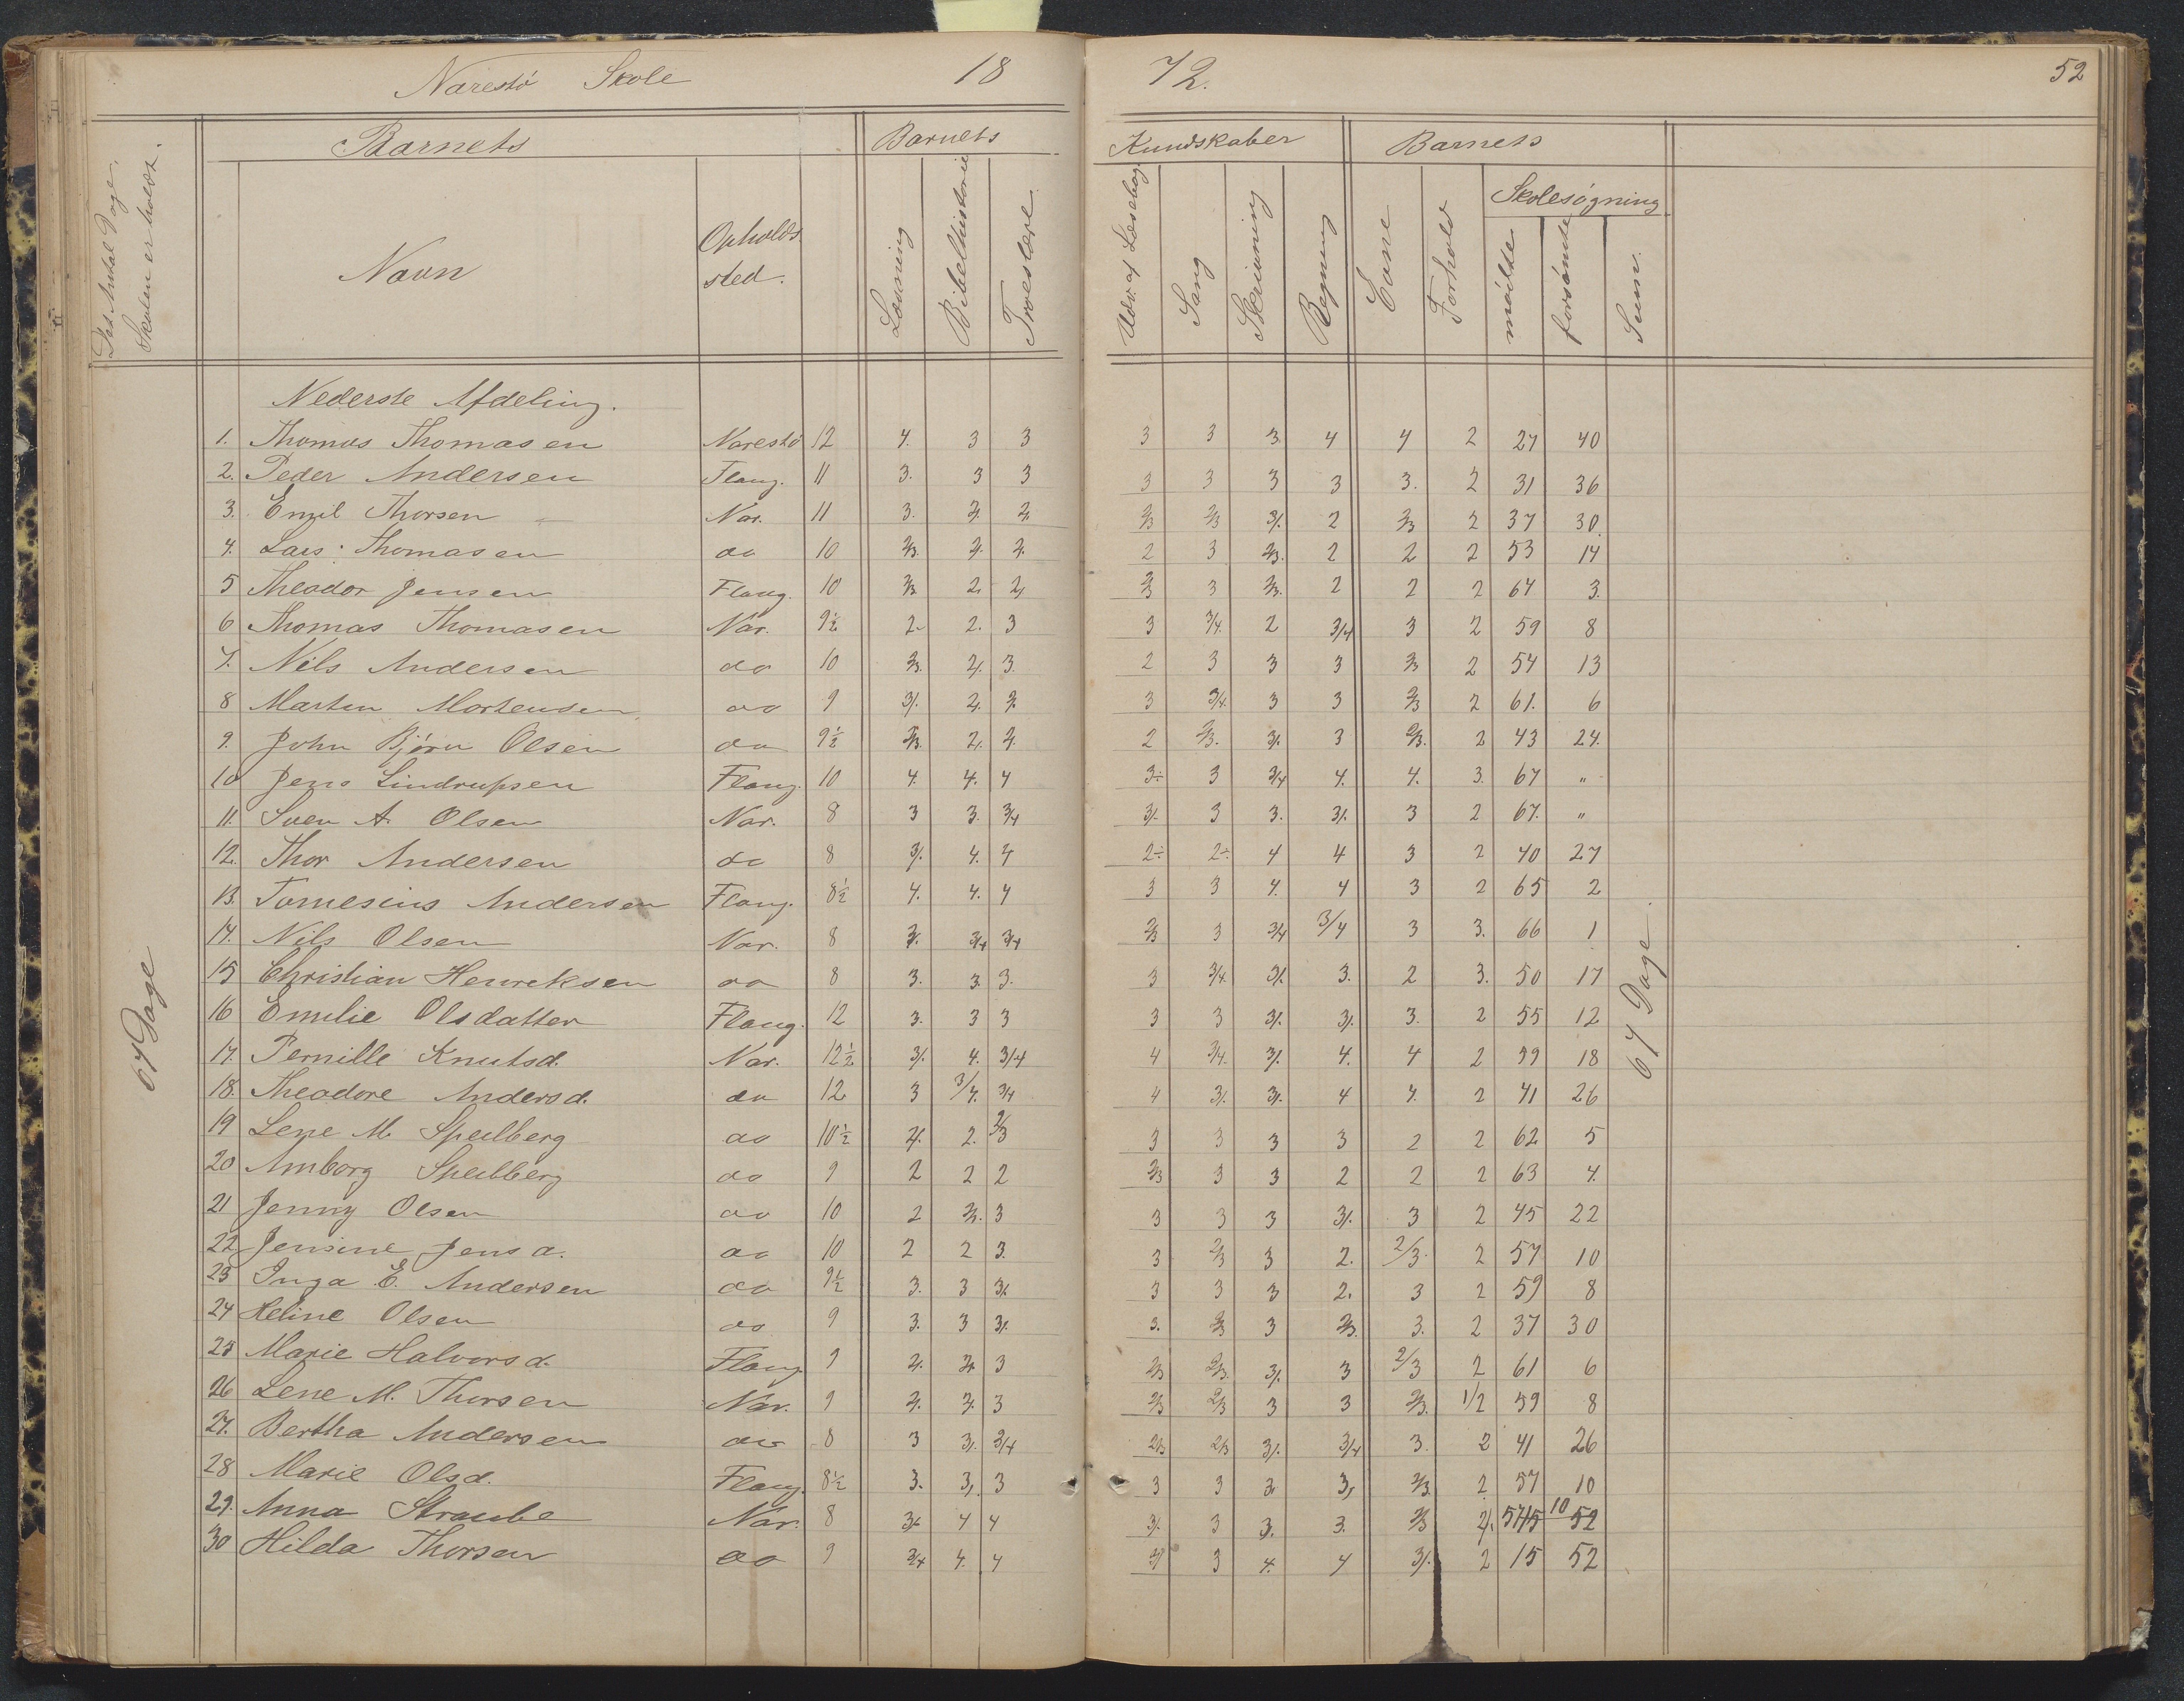 Narestö Skole 18 72. 52
Det Antal Dage Skolen er holdt.
Barnets Barnets Kundskaber Barnets
Navn Opholdssted. Læsning Bibelhistorie Troeslære Udv. af Læsebog Sang Skrivning Regning Evne Forhold Skolesøgning
mødte forsømte Sum.
Nederste Afdeling.
1. Thomas Thomasen Narestö 12 4. 3 3 3 3 3. 4 4 2 27 40
2. Peder Andersen Flang. 11 3. 3 3 3 3 3 3 3. 2 31 36
3. Emil Thorsen Nar. 11 3. 2/. 2/. 2/3 2/3 3/. 2 2/3 2 37 30.
4. Lars Thomasen do 10 2/3. 2/. 2/. 2 3 2/3. 2 2 2 53 14
5 Theodor Jensen Flang. 10 2/3 2. 2/. 2/3 3 2/3. 2 2 2 64 3.
6 Thomas Thomasen Nar. 9½ 2. 2. 3 3 3/4. 2 3/4 3 2 59 8
7. Nils Andersen do 10 2/3. 2/. 3. 2 3 3 3 2/3 2 54 13
8 Marten Mortensen do 9 3/. 2/. 2/. 3 3/4. 3 3 2/3 2 61. 6
9. John Björn Olsen do 9½ 2/3. 2/. 2/. 2 2/3. 3/. 3 2/3. 2 43 24.
10 Jens Lindrupsen Flang. 10 4. 4. 4 3÷ 3 3/4 4. 4. 3. 67 "
11. Sven A. Olsen Nar. 8 3 3. 3/4 3/. 3 3. 3/. 3 2 67. "
12. Thor Andersen do 8 3/. 4. 4 2÷ 2÷ 4 4 3 2 40 27
13. Tomesius Andersen Flang. 8½ 4. 4. 4 3 3 4. 4 3 2 65 2
14. Nils Olsen Nar. 8 3/. 3/4 3/4 2/3 3 3/4 3/4 3 3. 66 1
15 Christian Henreksen do 8 3. 3. 3. 3 3/4. 3/. 3. 2 3. 50 17
16 Emilie Olsdatter Flang. 12 3. 3 3 3 3 3/. 3/. 3. 2 55 12
17. Pernille Knutsd. Nar. 12½ 3/. 4. 3/4 4 3/4. 3/. 4. 4 2 49 18
18. Theodore Andersd. do 12 3 3/4. 3/4 4 3/. 3/. 4 4. 2 41 26
19 Lene M. Speilberg do 10½ 2/. 2. 2/3 3 3 3 3 2 2 62 5
20 Amborg Speilberg do 9 2 2 2 2/3 3 3 2 2 2 63 4.
21 Jenny Olsen do 10 2 2/3. 3 3 3 3 3/. 3 2 45 22
22 Jensine Jensd. do 10 2 2 3. 3 2/3 3 2. 2/3. 2 57 10
23 Inga E. Andersen do 9½ 3. 3 3/. 3 3 3 2. 3 2 59 8
24 Heline Olsen do 9 3. 3 3/. 3. 2/3 3 2/3. 3. 2 37 30
25 Marie Halvorsd. Flang. 9 2/. 2/. 3 2/3 2/3. 3/. 3 2/3 2 61 6
26 Lene M. Thorsen Nar. 9 2/. 2/. 3 2/3 2/3 3 3 2/3. 1/2 59 8
27. Bertha Andersen do 8 3 3/. 3/4 2/3 2/3 3/. 3/4 3. 2 41 26
28 Marie Olsd. Flang. 8½ 3. 3/. 3 3 3 3 3/. 2/3. 2 57 10
29. Anna Straube Nar. 8 3/. 4 4 3/. 3 3. 3. 2/3 2/. 57 15 10 52
30 Hilda Thorsen do 9 3/4 4. 4 3/ 3 4. 4 3/. 2 15 52
67 Dage
67 Dage.